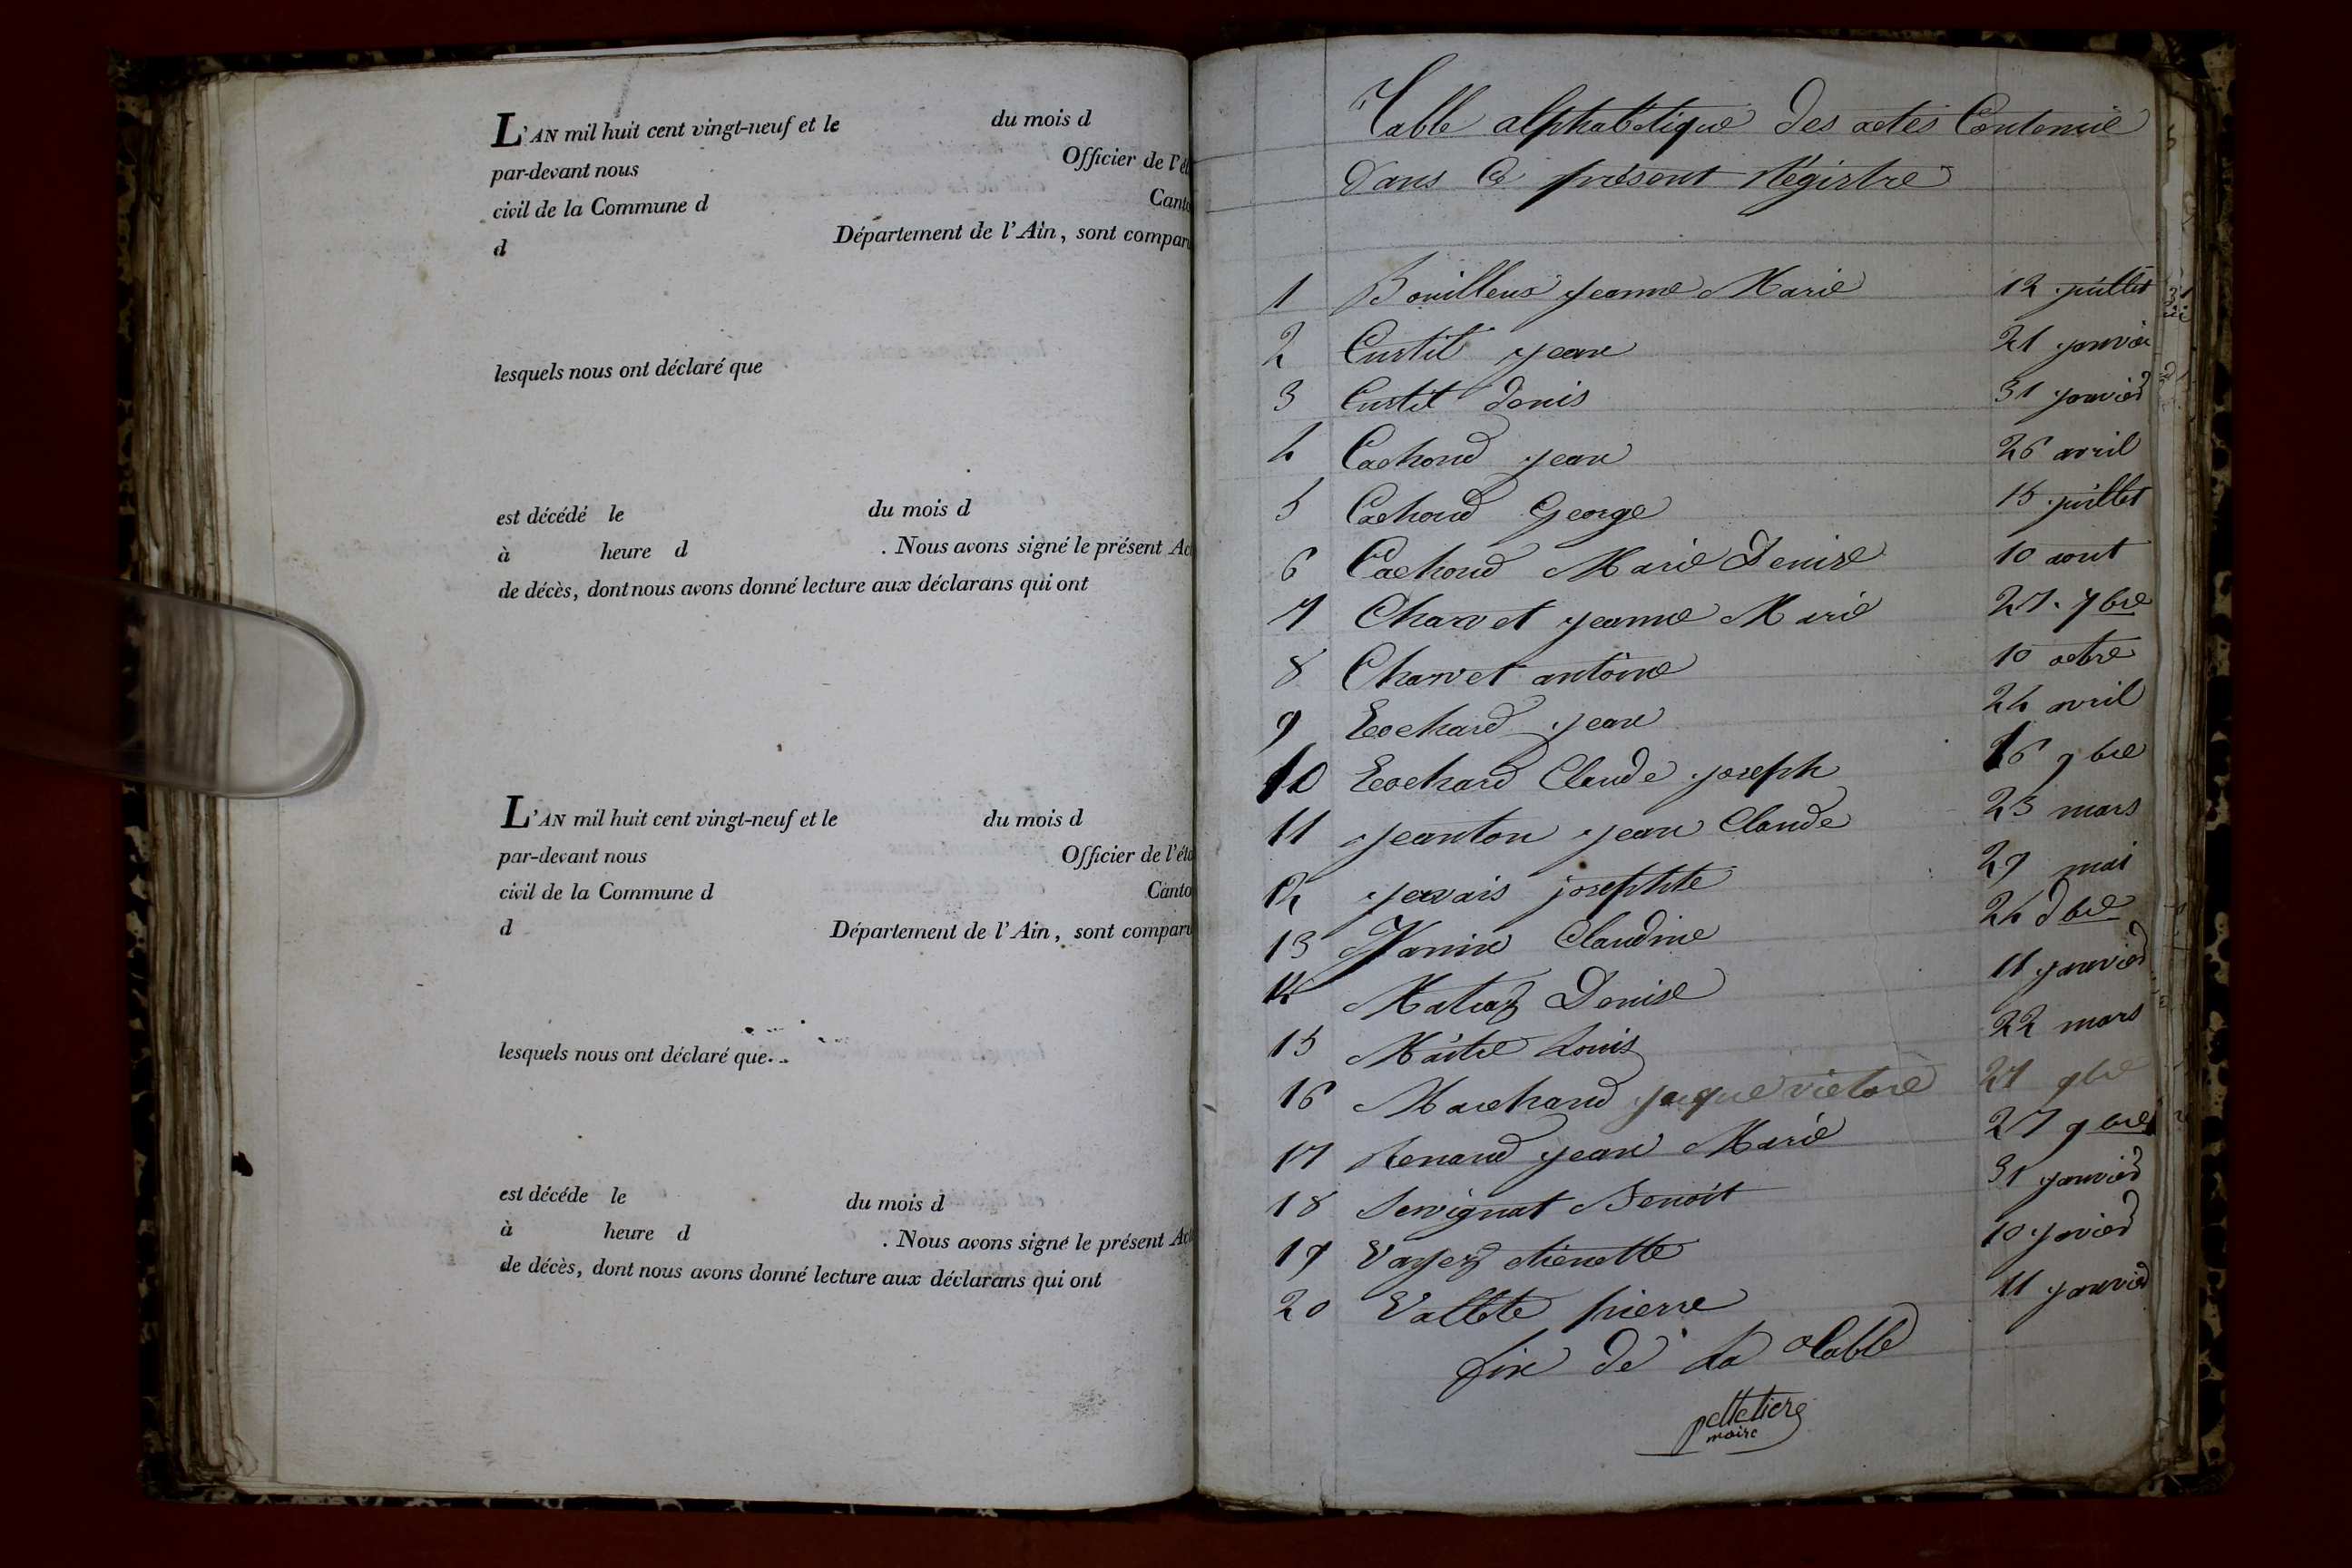 L'AN mil huit cent vingt-neuf et le du mois d
par-devant nous Officier de l'ét
civil de la Commune d Canto
d Département de l'Ain, sont comparu
lesquels nous ont déclaré que
est décédé le du mois d
à heure d . Nous avons signé le présent Act
de décès, dont nous avons donné lecture aux déclarans qui ont
L'AN mil huit cent vingt-neuf et le du mois d
par-devant nous Officier de l'éta
civil de la Commune d Canto
d Département de l'Ain, sont comparu
lesquels nous ont déclaré que
est décéde le du mois d
à heure d . Nous avons signé le présent Act
de décès, dont nous avons donné lecture aux déclarans qui ont
Table alphabétique des actes Contenue
dans le présent Régistre
1 Bouilleux jeanne Marie 12 juillet
2 Curtil jean 21 janvier
3 Curtil denis 31 janvier
4 Cachoud jean 26 avril
5 Cachoud George 15 juillet
6 Cachoud Marie Denise 10 aout
7 Charvet jeanne Marie 27. 7bre
8 Charvet antoine 10 octre
9 Ecochard jean 24 avril
10 Ecochard Claude joseph 16 9bre
11 jeanton jean Claude 23 mars
12 jervais josephte 29 mai
13 Claudine 24 dbre
14 Denise 11 janvier
15 Maitre Louis 22 mars
16 Marchand jaque victoire 27 9bre
17 Renaud jean Marie 27 9bre
18 Servignat Benoit 31 janvier
19 Vayer etienette 10 jvier
20 Vallete pierre 11 janvier
fin de la table
pelletier
maire